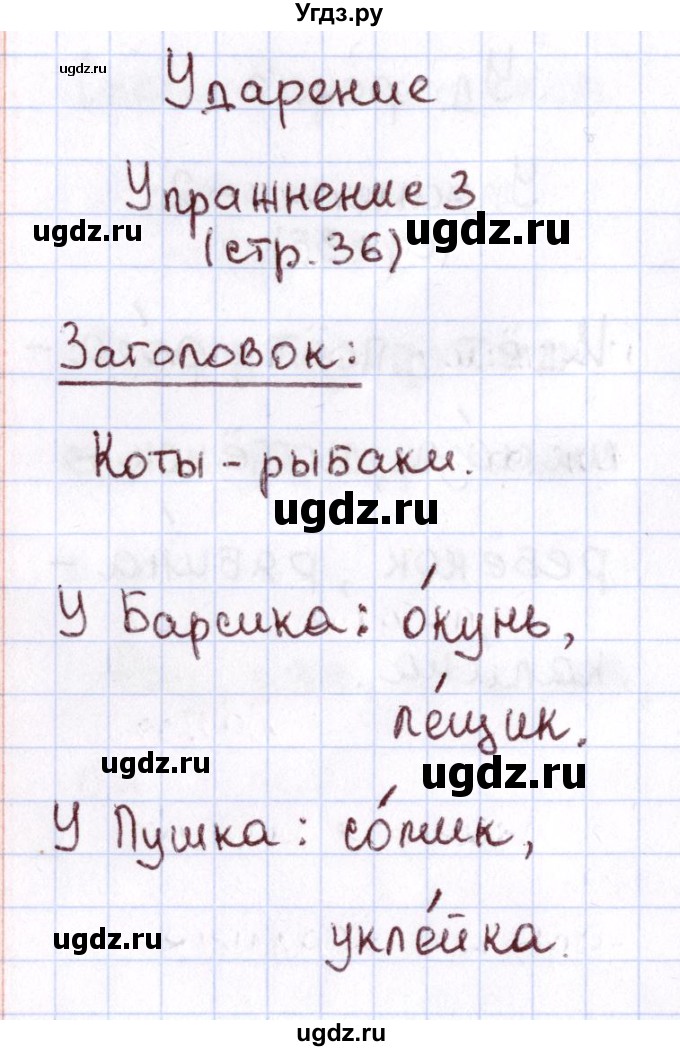 Угдз.ру
ugdz.ru
Ударение
Упражнение 3
ugdz.ru (стр. 36) ugdz.ru
Заголовок:
Коты - рыбаки.
ugdz.ru
У Барсика: о́кунь,
ле́щик.
ugdz.ru ugdz.ru
У Пушка: со́мик,
ugdz.ru укле́йка.
ugdz.ru